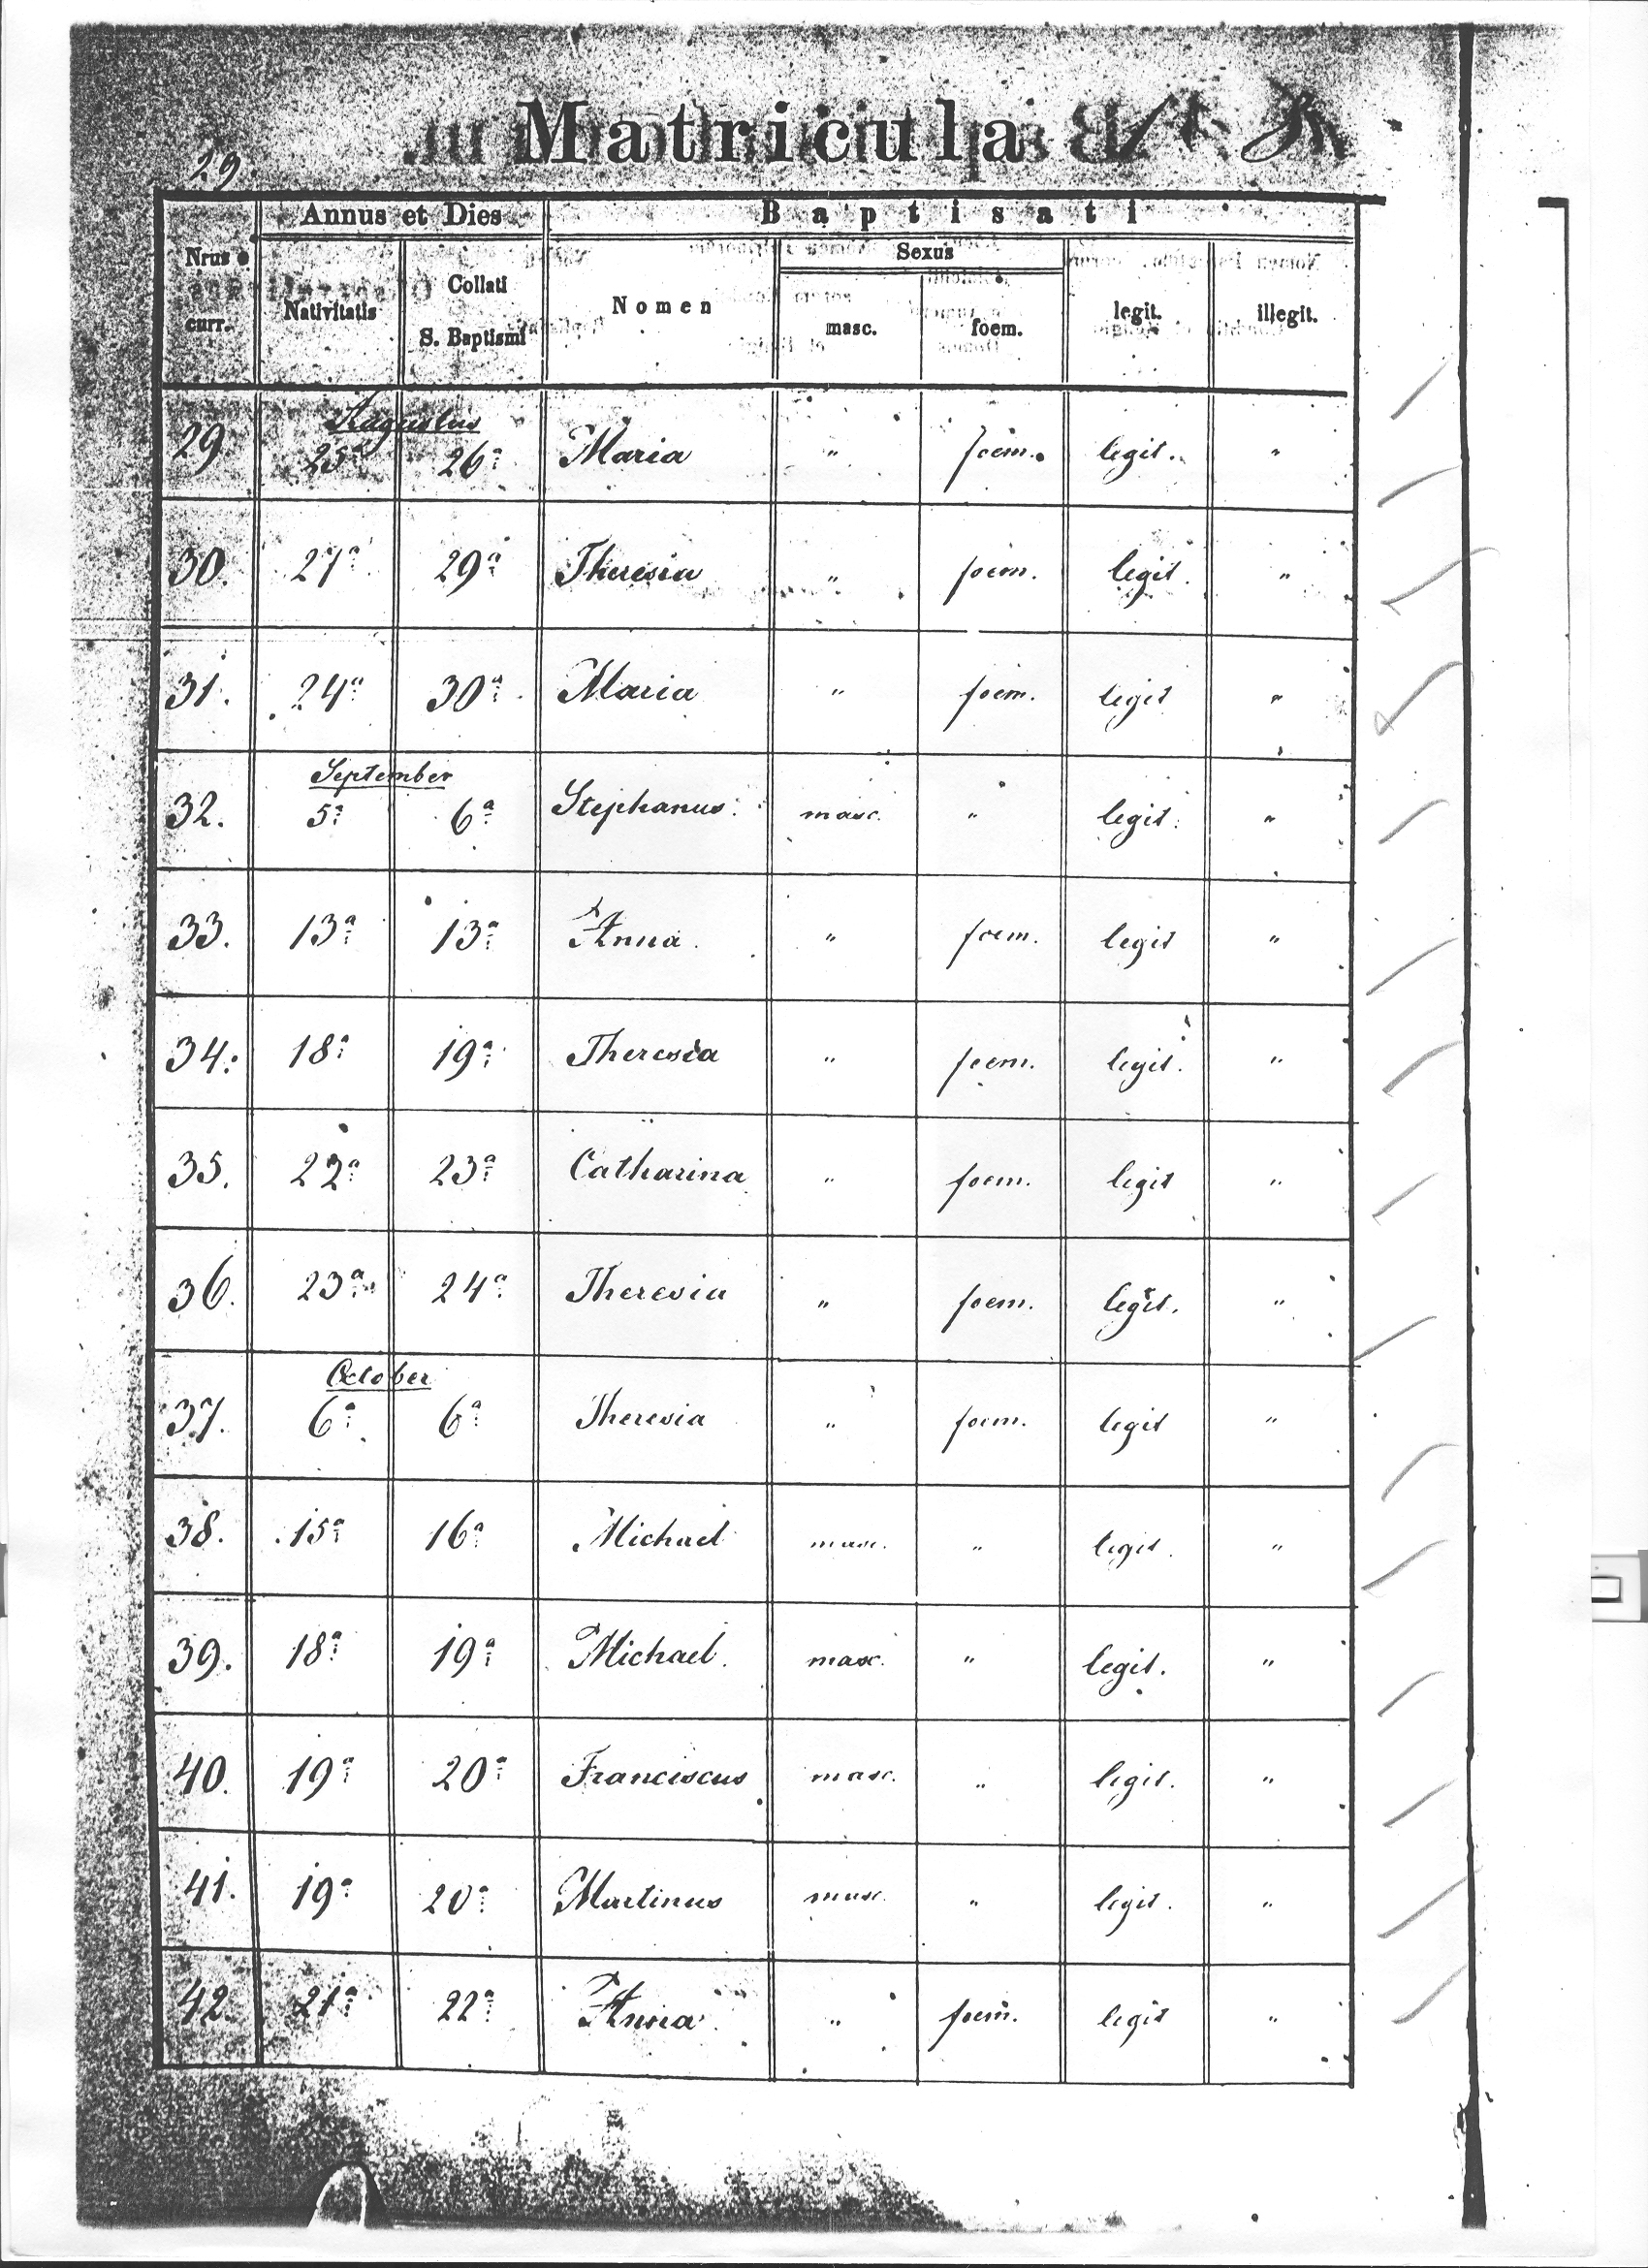 29.
Matricula
Annus et Dies
Baptisati
Nrus curr.
Nativitatis
Collati S. Baptismi
Nomen
Sexus
masc.
foem.
legit.
illegit.
Augustus
29 25a 26a Maria " foem. legit. "
30. 27a 29a Theresia " foem. legit. "
31. 24a 30a Maria " foem. legit "
September
32. 5a 6a Stephanus masc. " legit. "
33. 13a 13a Anna. " foem. legit "
34. 18a 19a Theresia " foem. legit. "
35. 22a 23a Catharina " foem. legit "
36. 23a 24a Theresia " foem. legit. "
October
37. 6a 6a Theresia " foem. legit "
38. 15a 16a Michael masc. " legit. "
39. 18a 19a Michael. masc. " legit. "
40. 19a 20a Franciscus masc. " legit. "
41. 19a 20a Martinus masc. " legit. "
42. 21a 22a Anna " foem. legit "